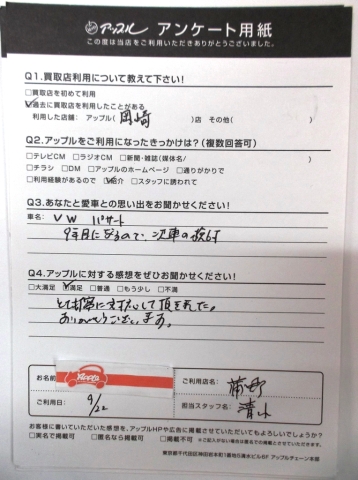 アップル アンケート用紙
この度は当店をご利用いただきありがとうございました。
Q1.買取店利用について教えて下さい!
□買取を初めて利用
☑過去に買取店を利用したことがある
利用した店舗: アップル( 岡崎 )店 その他( )
Q2.アップルをご利用になったきっかけは?(複数回答可)
□テレビCM □ラジオCM □新聞・雑誌(媒体名/ )
□チラシ □DM □アップルのホームページ □通りがかりで
□利用経験があるので ☑紹介 □スタッフに誘われて
Q3.あなたと愛車との思い出をお聞かせください!
車名: VW パサート
9年目になるので、次車の
Q4.アップルに対する感想をぜひお聞かせください!
□大満足 ☑満足 □普通 □もう少し □不満
とても丁寧に対応して頂きました。
ありがとうございます。
お名前
ご利用店名:
ご利用日: 9/22
担当スタッフ名: 清水
お客様に書いていただいた感想を、アップルHPや広告に掲載させていただいてもよろしいでしょうか?
□実名で掲載可 □匿名なら掲載可 □掲載不可 ※ご記入がない場合は匿名での掲載とさせていただきます。
東京都千代田区神田岩本町1番地5清水ビル6F アップルチェーン本部